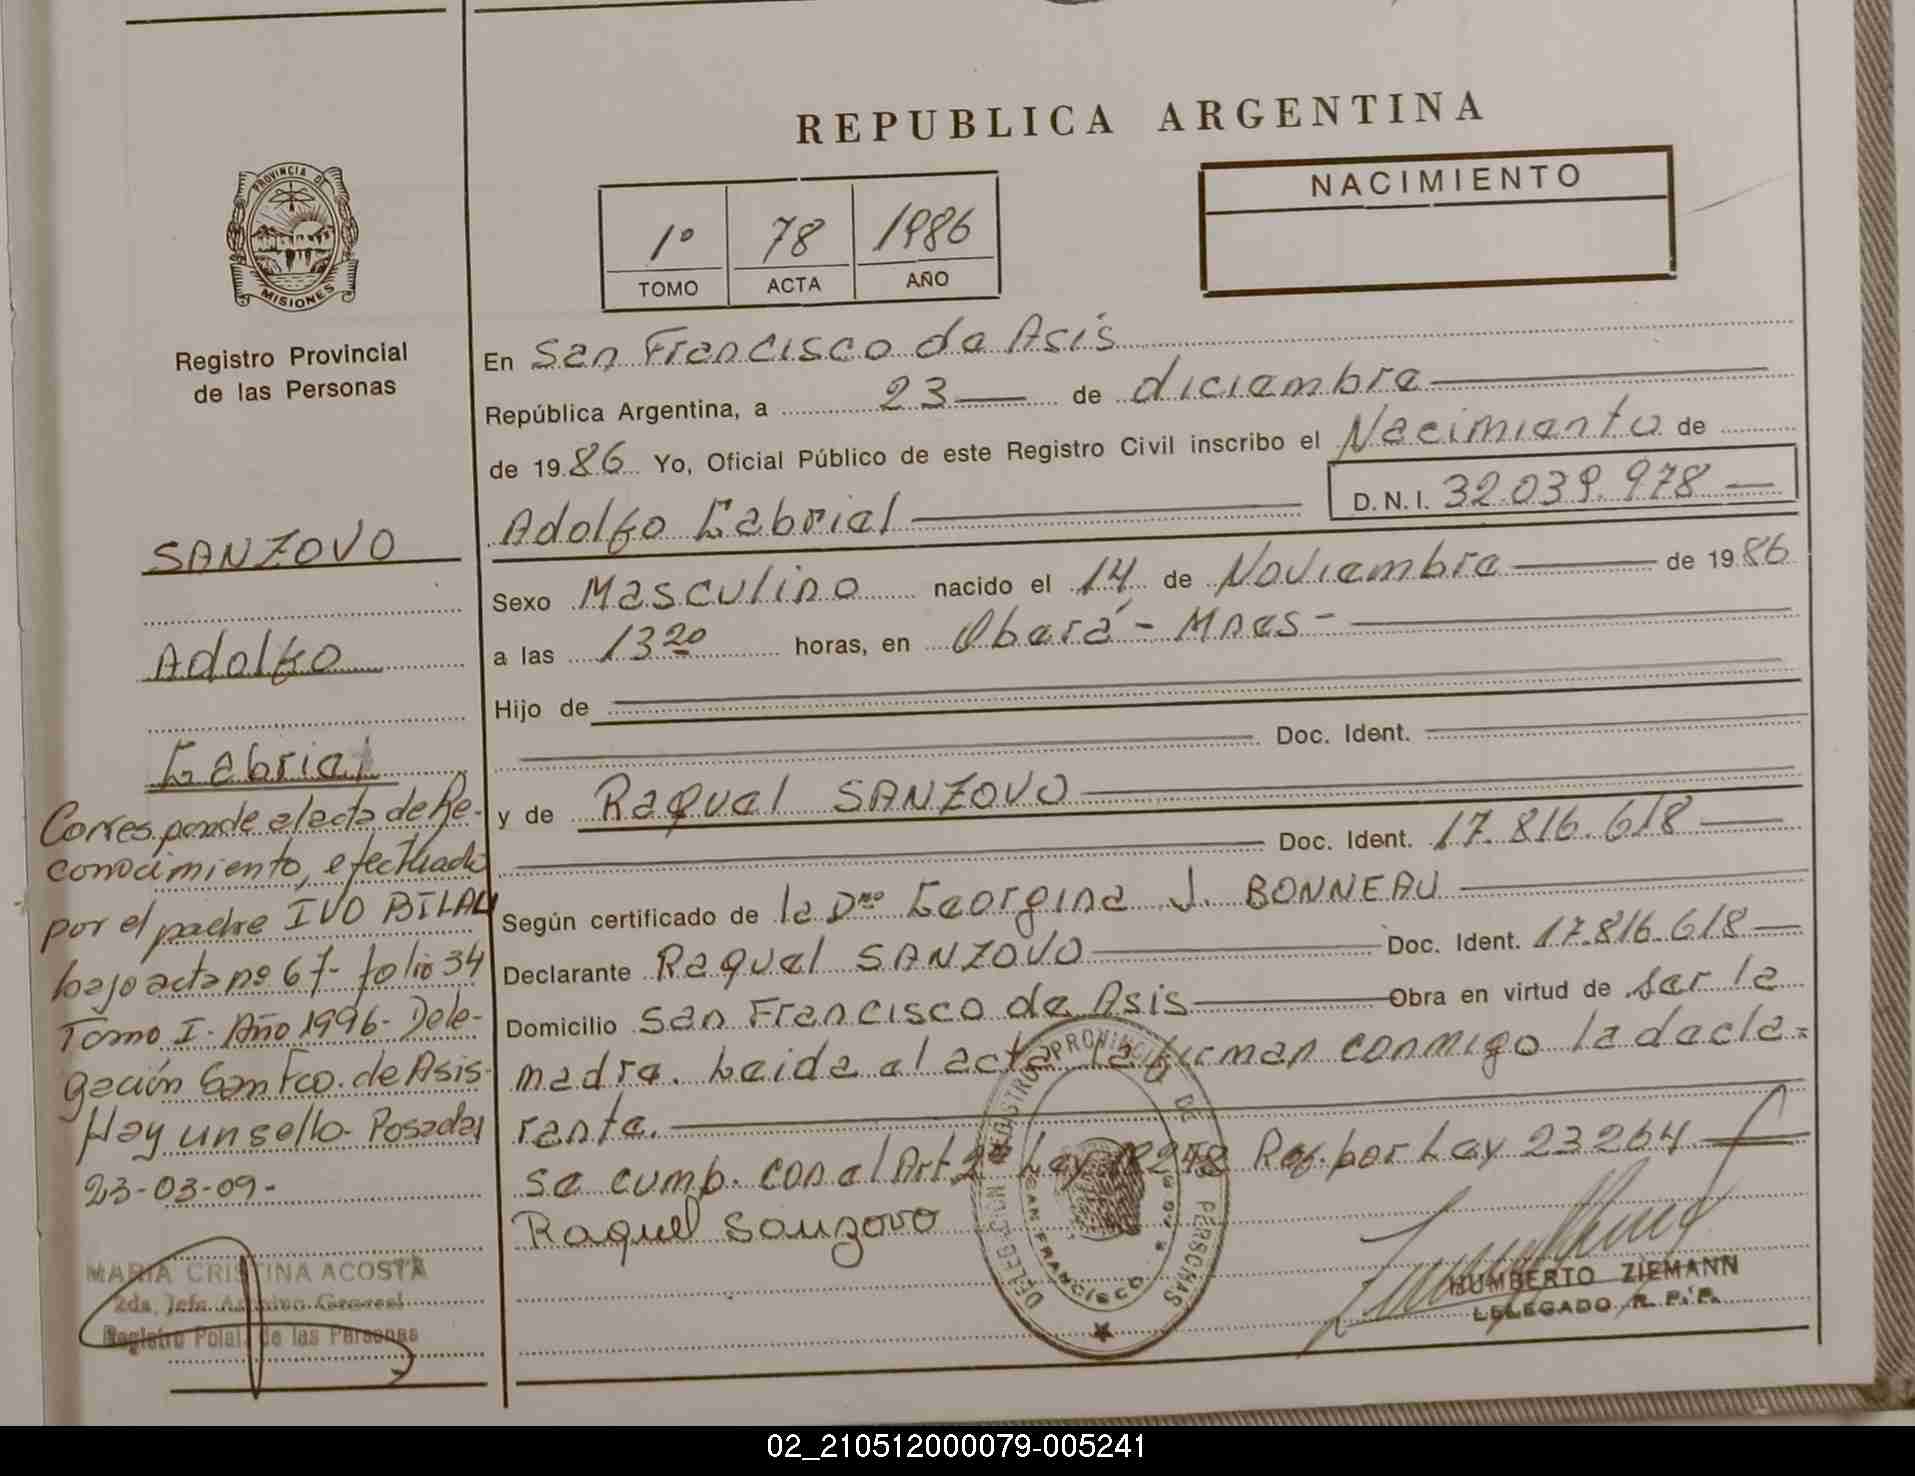 REPUBLICA ARGENTINA
PROVINCIA DE
MISIONES
Registro Provincial
de las Personas
1º 78 1986
TOMO ACTA AÑO
NACIMIENTO
En San Francisco de Asis
República Argentina, a 23 de diciembre
de 1986 Yo, Oficial Público de este Registro Civil inscribo el Nacimiento de
Adolfo Gabriel D.N.I. 32.039.978
Sexo Masculino nacido el 14 de Noviembre de 1986
a las 13 20 horas, en Oberá - Mnes -
Hijo de
Doc. Ident.
y de Raquel SANZOVO
Doc. Ident. 17.816.618
Según certificado de la Dra Georgina J. BONNEAU
Declarante Raquel SANZOVO Doc. Ident. 17.816.618
Domicilio San Francisco de Asis Obra en virtud de ser la
madre. Leida el acta la firman conmigo la decla=
rante.
se cumb. con el Art. 2º Ley 18248 Ref. por Ley 23264
Raquel Sanzovo
HUMBERTO ZIEMANN
DELEGADO R. P. P.
SANZOVO
Adolfo
Gabriel
Corresponde al acta de Re-
conocimiento, efectuado
por el padre IVO BILAU
bajo acta nº 67- folio 34
Tomo I- Año 1996- Dele-
gación San Fco. de Asis-
Hay un sello- Posadas
23-03-09-
MARIA CRISTINA ACOSTA
2da. Jefe Archivo General
Registro Pcial. de las Personas
REGISTRO PROVINCIAL DE PERSONAS
SAN FRANCISCO
02_210512000079-005241